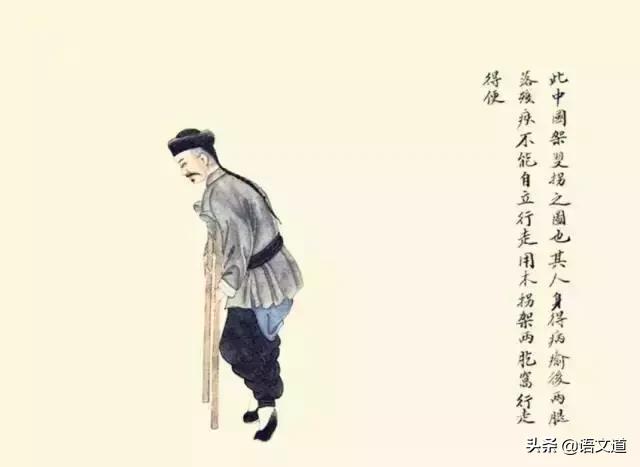 此中國架雙拐之圖也其人身得病瘉後兩腿
落殘疾不能自立行走用木拐架兩肐窩行走
得便
头条 @语文道